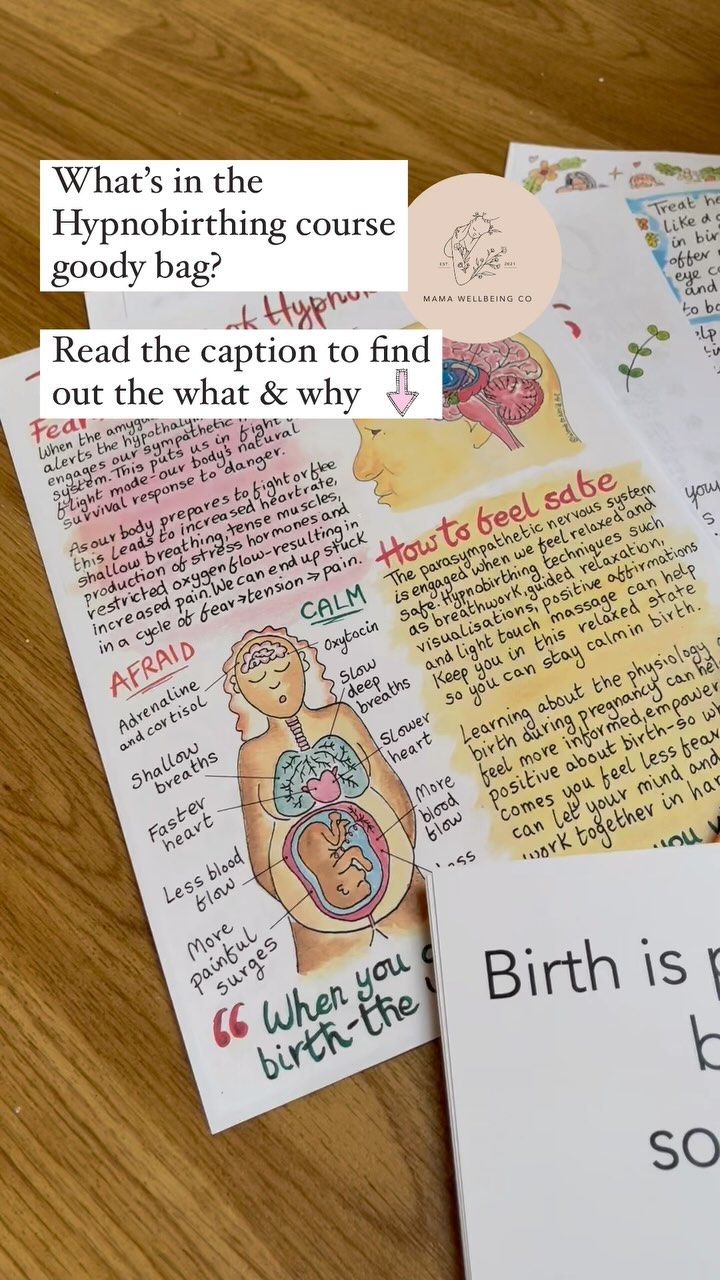 What's in the
Hypnobirthing course
goody bag?
EST 2021
MAMA WELLBEING CO
Read the caption to find
out the what & why
of Hypno
Fear
When the amyg
alerts the hypothalam
engages our sympathetic
system. This puts us in fight
flight mode-our body's natural
survival response to danger.
As our body prepares to fight or flee
this leads to increased heartrate,
shallow breathing, tense muscles,
production of stress hormones and
restricted oxygen flow-resulting in
increased pain. We can end up stuck
in a cycle of fear→tension→pain.
AFRAID
CALM
Adrenaline
and cortisol
Shallow
breaths
Faster
heart
Less blood
flow
More
painful
surges
Oxytocin
Slow
deep
breaths
Slower
heart
More
blood
flow
Less
"When you
birth-the
How to feel safe
The parasympathetic nervous system
is engaged when we feel relaxed and
safe. Hypnobirthing techniques such
as breathwork, guided relaxation,
visualisations, positive affirmations
and light touch massage can help
keep you in this relaxed state
so you can stay calm in birth.
Learning about the physiology
birth during pregnancy can hel
feel more informed, empower
positive about birth-so wh
comes you feel less fear
can let your mind and
work together in har
you
Treat he
like a
in bir
offer
eye co
and
to bo
help
your
Birth is p
b
so